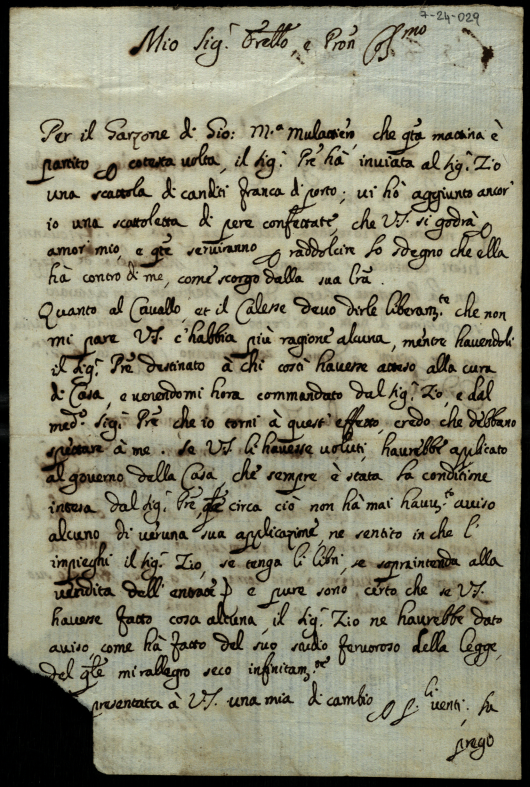 7-24-029
Mio Sig.r Frello, e Pron
Per il Garzone di Gio: M.a Mulattiero, che q.ta mattina è
partito p cotesta volta, il Sig.r Pre hà inuiata al Sig.r Zio
una scattola di canditi franca di porto; ui hò aggiunto ancor
io una scattoletta di pere confettate, che VS. si godrà p
amor mio, e q.te seruiranno p raddolcire lo sdegno che ella
hà contro di me, come scorgo dalla sua lra.
Quanto al Cauallo, et il Calesse deuo dirle liberam.te che non
mi pare VS. c'habbia più ragione alcuna, mentre hauendoli
il Sig.r Pre destinato à chi costì hauesse atteso alla cura
di Casa, e uenendomi hora commandato dal Sig.r Zio, e dal
med.o Sig.r Pre che io torni à quest'effetto, credo che debbano
spettare à me. Se VS. li hauesse uoluti, haurebbe applicato
al gouerno della Casa, che sempre è stata la conditione
intesa dal Sig.r Pre, circa ciò non hà mai hauu.to auiso
alcuno di ueruna sua applicatione, ne sentito in che l'
impieghi il Sig.r Zio, se tenga li libri, se sopraintenda alla
uendita dell'entrate e pure sono certo che se VS.
hauesse fatto cosa alcuna, il Sig.r Zio ne haurebbe dato
auiso, come hà fatto del suo studio feruoroso della legge,
del q.le mi rallegro seco infinitam.te
presentata à VS. una mia di cambio p li uenti. la
prego